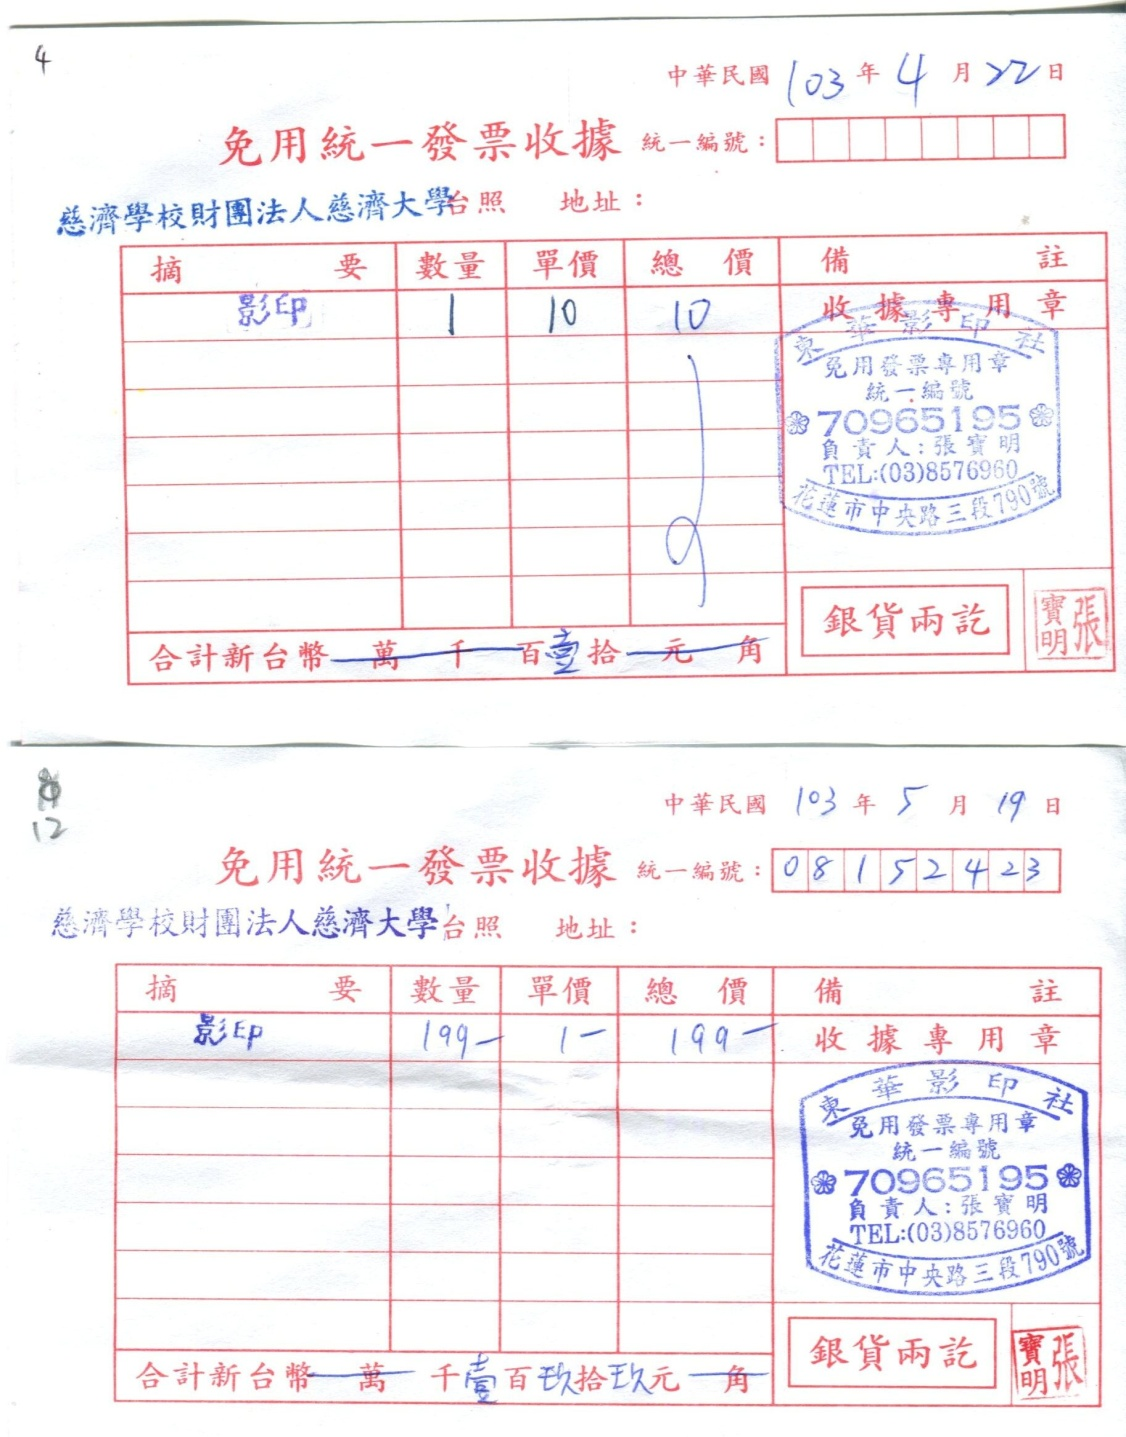 4
中華民國 103 年 4 月 22 日
免用統一發票收據 統一編號：
慈濟學校財團法人慈濟大學台照 地址：
摘 要 數量 單價 總 價 備 註
影印 1 10 10 收據專用章
東華影印社
免用發票專用章
統一編號
70965195
負責人：張寶明
TEL:(03)8576960
花蓮市中央路三段790號
銀貨兩訖
張寶明
合計新台幣 萬 千 百壹拾 元 角
12
中華民國 103 年 5 月 19 日
免用統一發票收據 統一編號：08152423
慈濟學校財團法人慈濟大學台照 地址：
摘 要 數量 單價 總 價 備 註
影印 199- 1- 199- 收據專用章
東華影印社
免用發票專用章
統一編號
70965195
負責人：張寶明
TEL:(03)8576960
花蓮市中央路三段790號
銀貨兩訖
張寶明
合計新台幣 萬 千壹百玖拾玖元 角